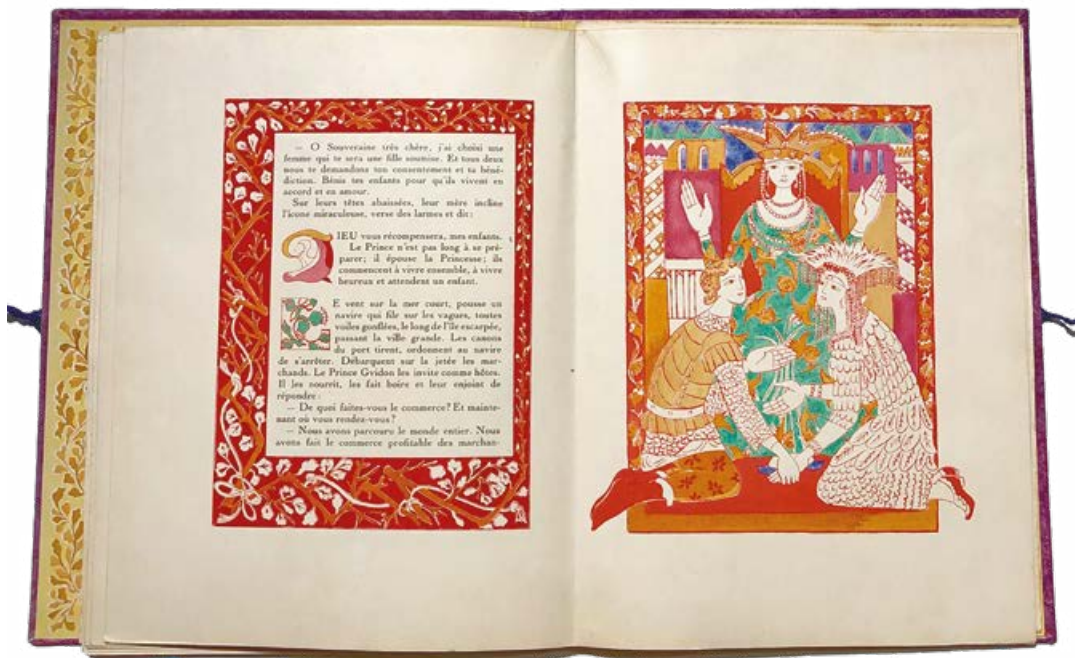 — O Souveraine très chère, j'ai choisi une
femme qui te sera une fille soumise. Et tous deux
nous te demandons ton consentement et ta béné-
diction. Bénis tes enfants pour qu'ils vivent en
accord et en amour.
Sur leurs têtes abaissées, leur mère incline
l'icone miraculeuse, verse des larmes et dit :
DIEU vous récompensera, mes enfants.
Le Prince n'est pas long à se pré-
parer ; il épouse la Princesse ; ils
commencent à vivre ensemble, à vivre
heureux et attendent un enfant.
LE vent sur la mer court, pousse un
navire qui file sur les vagues, toutes
voiles gonflées, le long de l'île escarpée,
passant la ville grande. Les canons
du port tirent, ordonnent au navire
de s'arrêter. Débarquent sur la jetée les mar-
chands. Le Prince Gvidon les invite comme hôtes.
Il les nourrit, les fait boire et leur enjoint de
répondre :
— De quoi faites-vous le commerce ? Et mainte-
nant où vous rendez-vous ?
— Nous avons parcouru le monde entier. Nous
avons fait le commerce profitable des marchan-